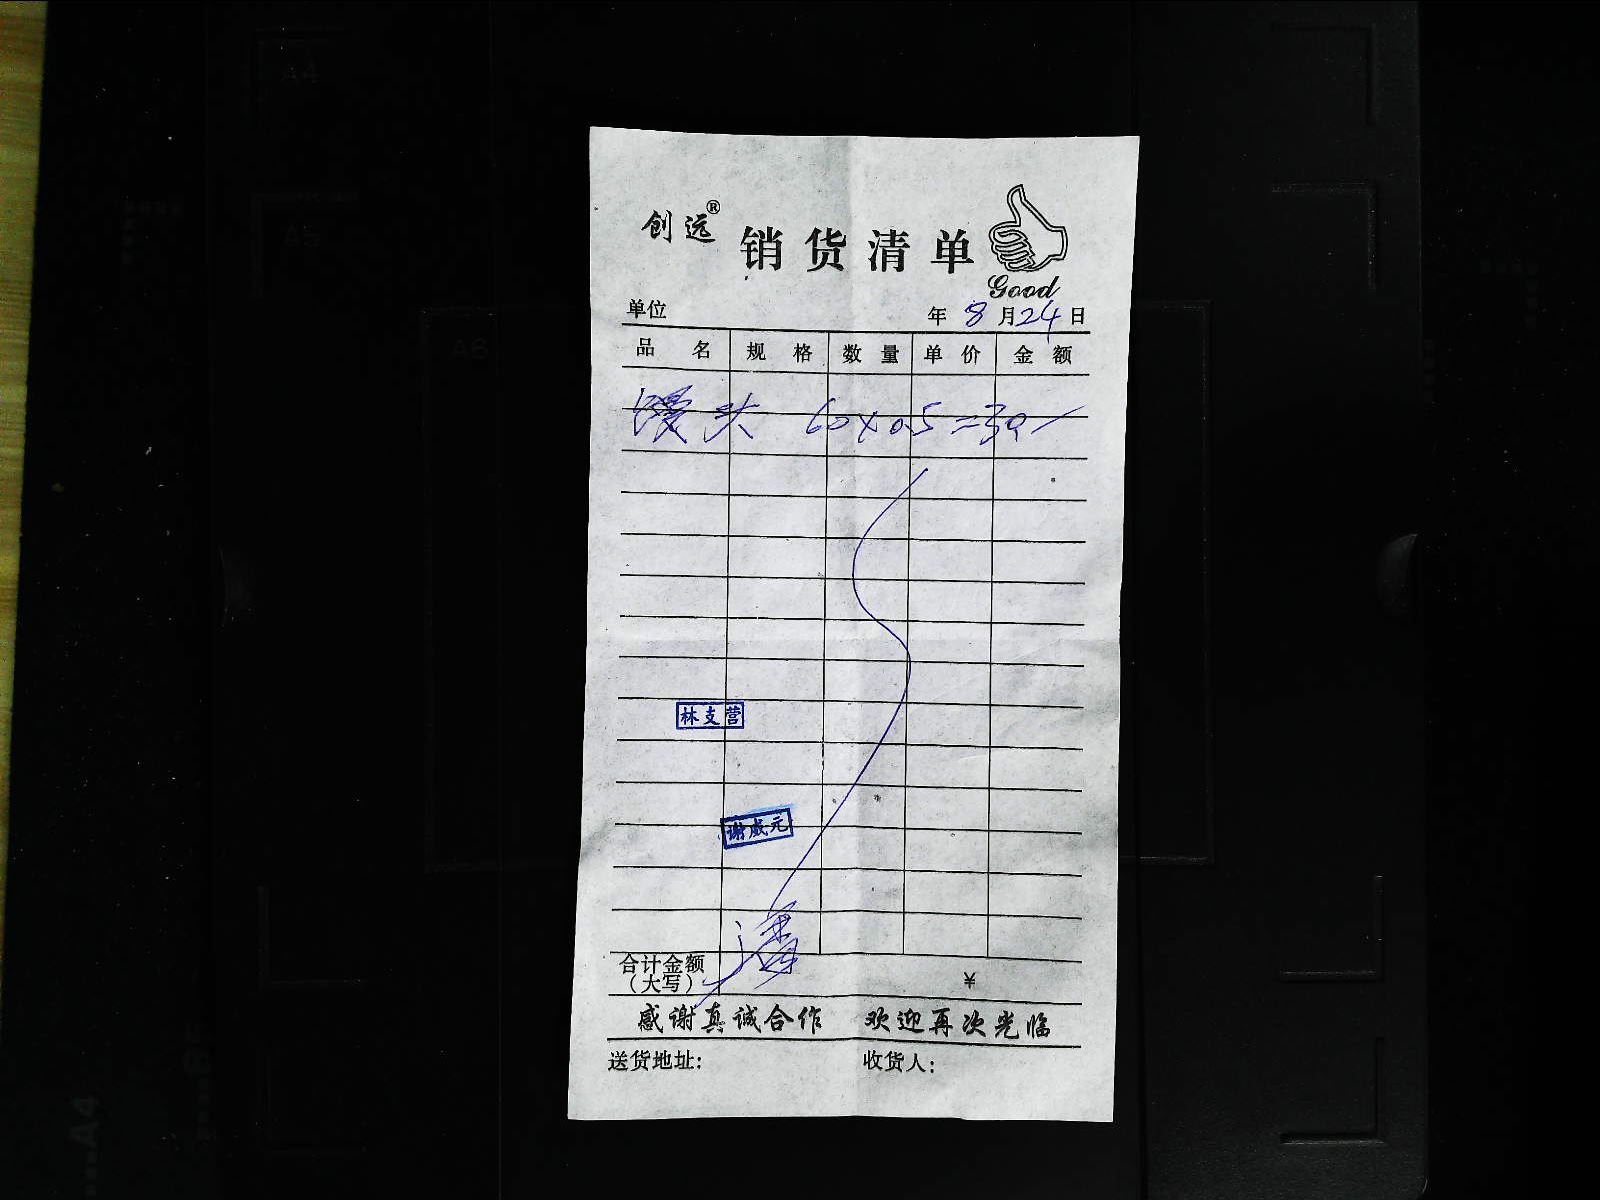 创远® 销货清单
Good
单位 年 8 月 24 日
品名 规格 数量 单价 金额
馒头 60×0.5=30/
林支营
谢咸元
潘
合计金额
(大写) ¥
感谢真诚合作 欢迎再次光临
送货地址: 收货人:
A4
A5
A6
A4